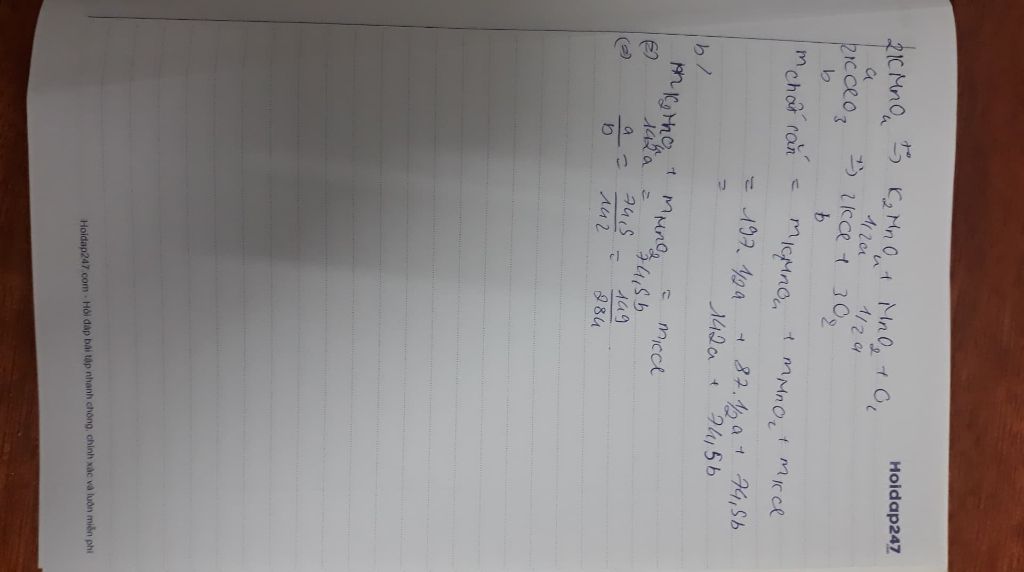 Hoidap247
2KMnO4 t°→ K2MnO4 + MnO2 + O2
a 1/2a 1/2a
2KClO3 → 2KCl + 3O2
b b
m chất rắn = mKMnO4 + mMnO2 + mKCl
= 197.1/2a + 87.1/2a + 74,5b
= 142a + 74,5b
b/
mK2MnO4 + mMnO2 = mKCl
(=) 142a = 74,5b
(=) a/b = 74,5/142 = 149/284
Hoidap247.com - Hỏi đáp bài tập nhanh chóng, chính xác và luôn miễn phí